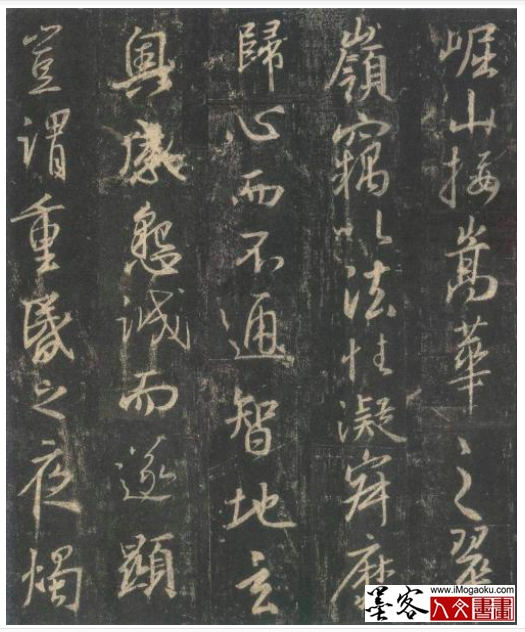 崛山接嵩華之翠
嶺竊以法性凝寂靡
歸心而不通智地玄
奧感懇誠而遂顯
豈謂重昏之夜燭
墨客
人文書畫
www.iMogaoku.com